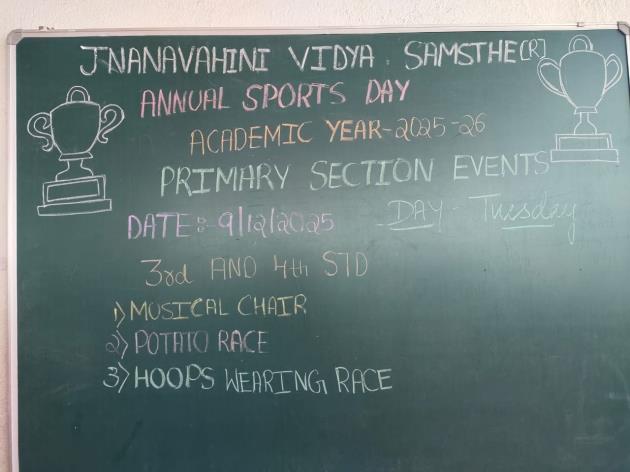 JNANAVAHINI VIDYA. SAMSTHE[R]
ANNUAL SPORTS DAY
ACADEMIC YEAR-2025-26
PRIMARY SECTION EVENTS
DATE:-9/12/2025 DAY - Tuesday
3rd AND 4th STD
1) MUSICAL CHAIR
2) POTATO RACE
3) HOOPS WEARING RACE